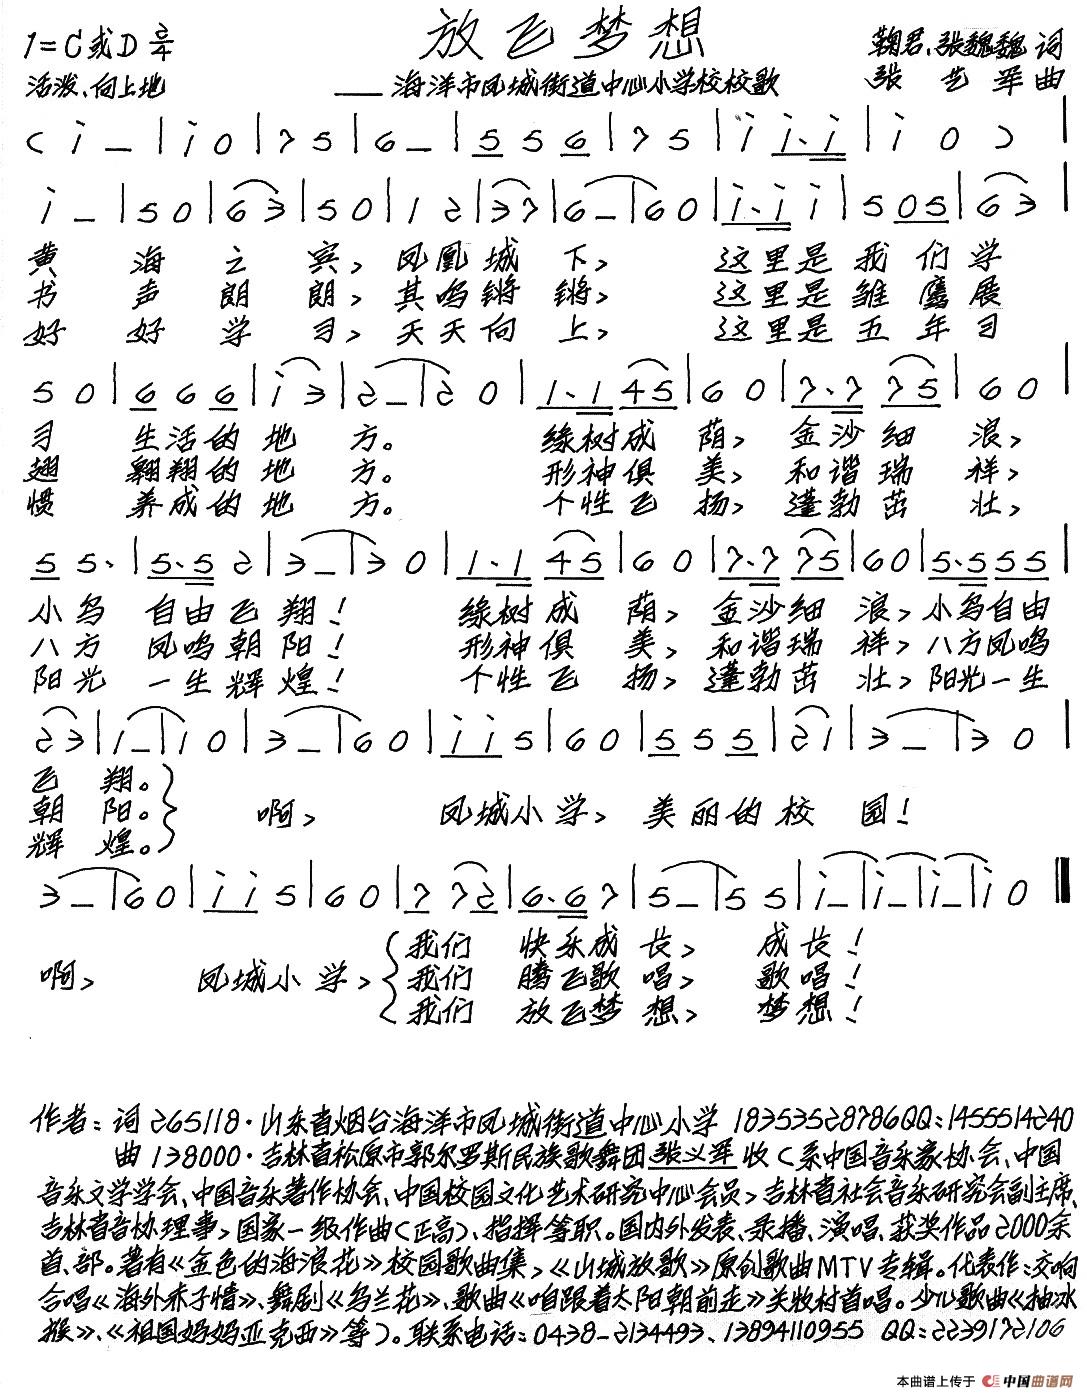 放飞梦想
1=C或D 2/4
鞠君、张魏魏 词
活泼、向上地
——海洋市凤城街道中心小学校校歌
张艺军 曲
( i – | i 0 | 7 5 | 6 – | 5 5 6 | 7 5 | i i·i | i 0 ) |
i – | 5 0 | 6 3 | 5 0 | 1 2 | 3 7 | 6 – | 6 0 | i·i i | 5 05 | 6 3 |
黄 海 之 宾, 凤凰城 下, 这里是 我 们 学
书 声 朗 朗, 其鸣锵 锵, 这里是 雏 鹰 展
好 好 学 习, 天天向 上, 这里是 五 年 习
5 0 | 6 6 6 | i 3 | 2 – | 2 0 | 1·1 45 | 6 0 | 7·7 75 | 6 0 |
习 生活的 地 方。 缘树成 荫, 金沙细 浪,
翅 翱翔的 地 方。 形神俱 美, 和谐瑞 祥,
惯 养成的 地 方。 个性飞 扬, 蓬勃茁 壮,
5 5· | 5·5 2 | 3 – | 3 0 | 1·1 45 | 6 0 | 7·7 75 | 6 0 | 5·5 55 |
小鸟 自由飞 翔! 缘树成 荫, 金沙细 浪, 小鸟自由
八方 凤鸣朝 阳! 形神俱 美, 和谐瑞 祥, 八方凤鸣
阳光 一生辉 煌! 个性飞 扬, 蓬勃茁 壮, 阳光一生
2 3 | 1 – | 1 0 | 3 – | 6 0 | i i 5 | 6 0 | 5 5 5 | 2 1 | 3 – | 3 0 |
飞 翔。
朝 阳。 啊, 凤城小学, 美丽的校 园!
辉 煌。
3 – | 6 0 | i i 5 | 6 0 | 7 7 2 | 6·6 7 | 5 – | 5 5 | i – | i – | i – | i 0 ‖
我们 快乐成 长, 成长!
啊, 凤城小学, 我们 腾飞歌 唱, 歌唱!
我们 放飞梦 想, 梦想!
作者: 词 265118·山东省烟台海洋市凤城街道中心小学 18353528786 QQ:1455514240
曲 138000·吉林省松原市郭尔罗斯民族歌舞团张义军 收(系中国音乐家协会、中国
音乐文学学会、中国音乐著作协会、中国校园文化艺术研究中心会员,吉林省社会音乐研究会副主席、
吉林省音协理事,国家一级作曲(正高)、指挥等职。国内外发表、录播、演唱、获奖作品2000余
首、部。著有《金色的海浪花》校园歌曲集,《山城放歌》原创歌曲MTV专辑。代表作:交响
合唱《海外赤子情》、舞剧《乌兰花》、歌曲《咱跟着太阳朝前走》关牧村首唱。少儿歌曲《抽冰
猴》、《祖国妈妈亚克西》等)。联系电话:0438-2134493、13894110955 QQ:2239172106
本曲谱上传于 中国曲谱网